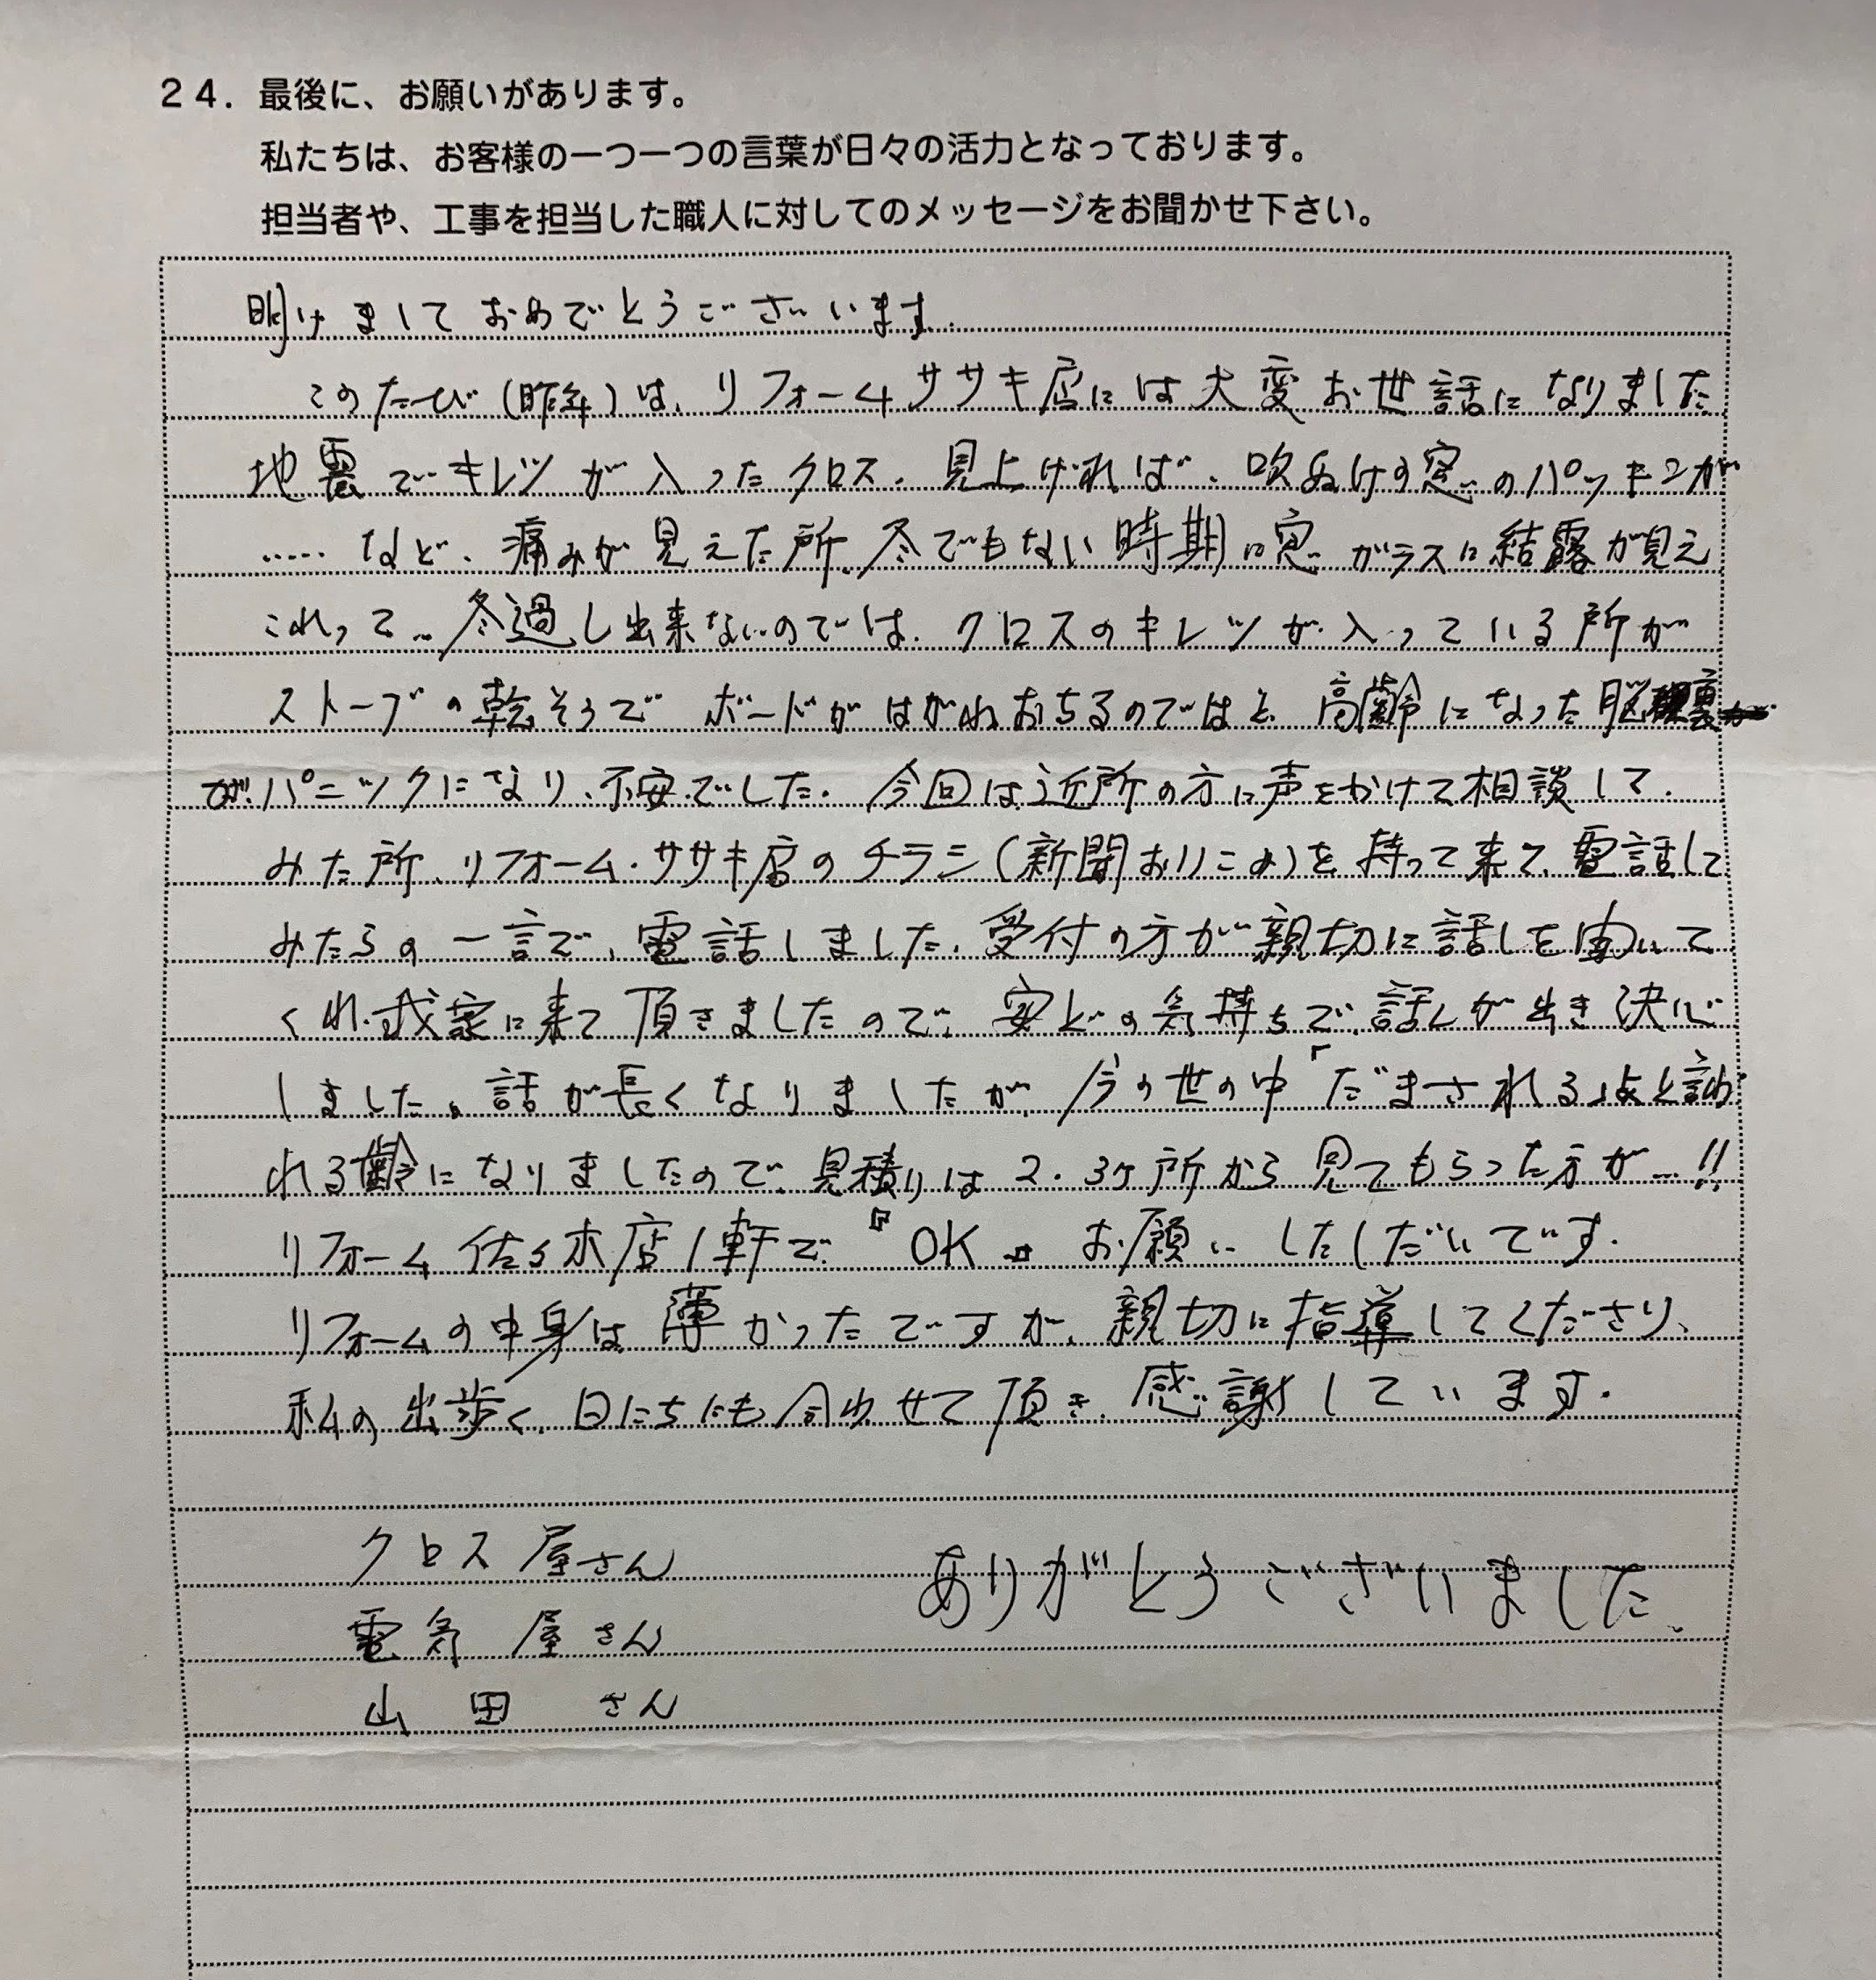 24. 最後に、お願いがあります。
私たちは、お客様の一つ一つの言葉が日々の活力となっております。
担当者や、工事を担当した職人に対してのメッセージをお聞かせ下さい。
明けましておめでとうございます.
このたび(昨年)は、リフォームササキ店には大変お世話になりました
地震でキレツが入ったクロス、見上げれば、吹ぬけの窓のパッキンが
..... など、痛みが見えた所、冬でもない時期に窓ガラスに結露が見え
これって…冬過し出来ないのでは、クロスのキレツが入っている所が
ストーブの乾そうで ボードがはがれおちるのではと、高齢になった脳裏
がパニックになり、不安でした. 今回は近所の方に声をかけて相談して.
みた所、リフォーム・ササキ店のチラシ(新聞おりこみ)を持って来て、電話して
みたらの一言で、電話しました、受付の方が親切に話しを聞いて
くれ、我家に来て頂きましたので、安どの気持ちで、話しが出き決心
しました。話が長くなりましたが、今の世の中「だまされるよと言わ
れる齢になりましたので、見積りは2.3ヶ所から見てもらった方が…!!
リフォーム佐々木店1軒で『OK』お願いしたしだいです.
リフォームの中身は薄かったですが、親切に指導してくださり、
私の出歩く、日にちにも合わせて頂き、感謝しています.
クロス屋さん
ありがとうございました.
電気屋さん
山田 さん